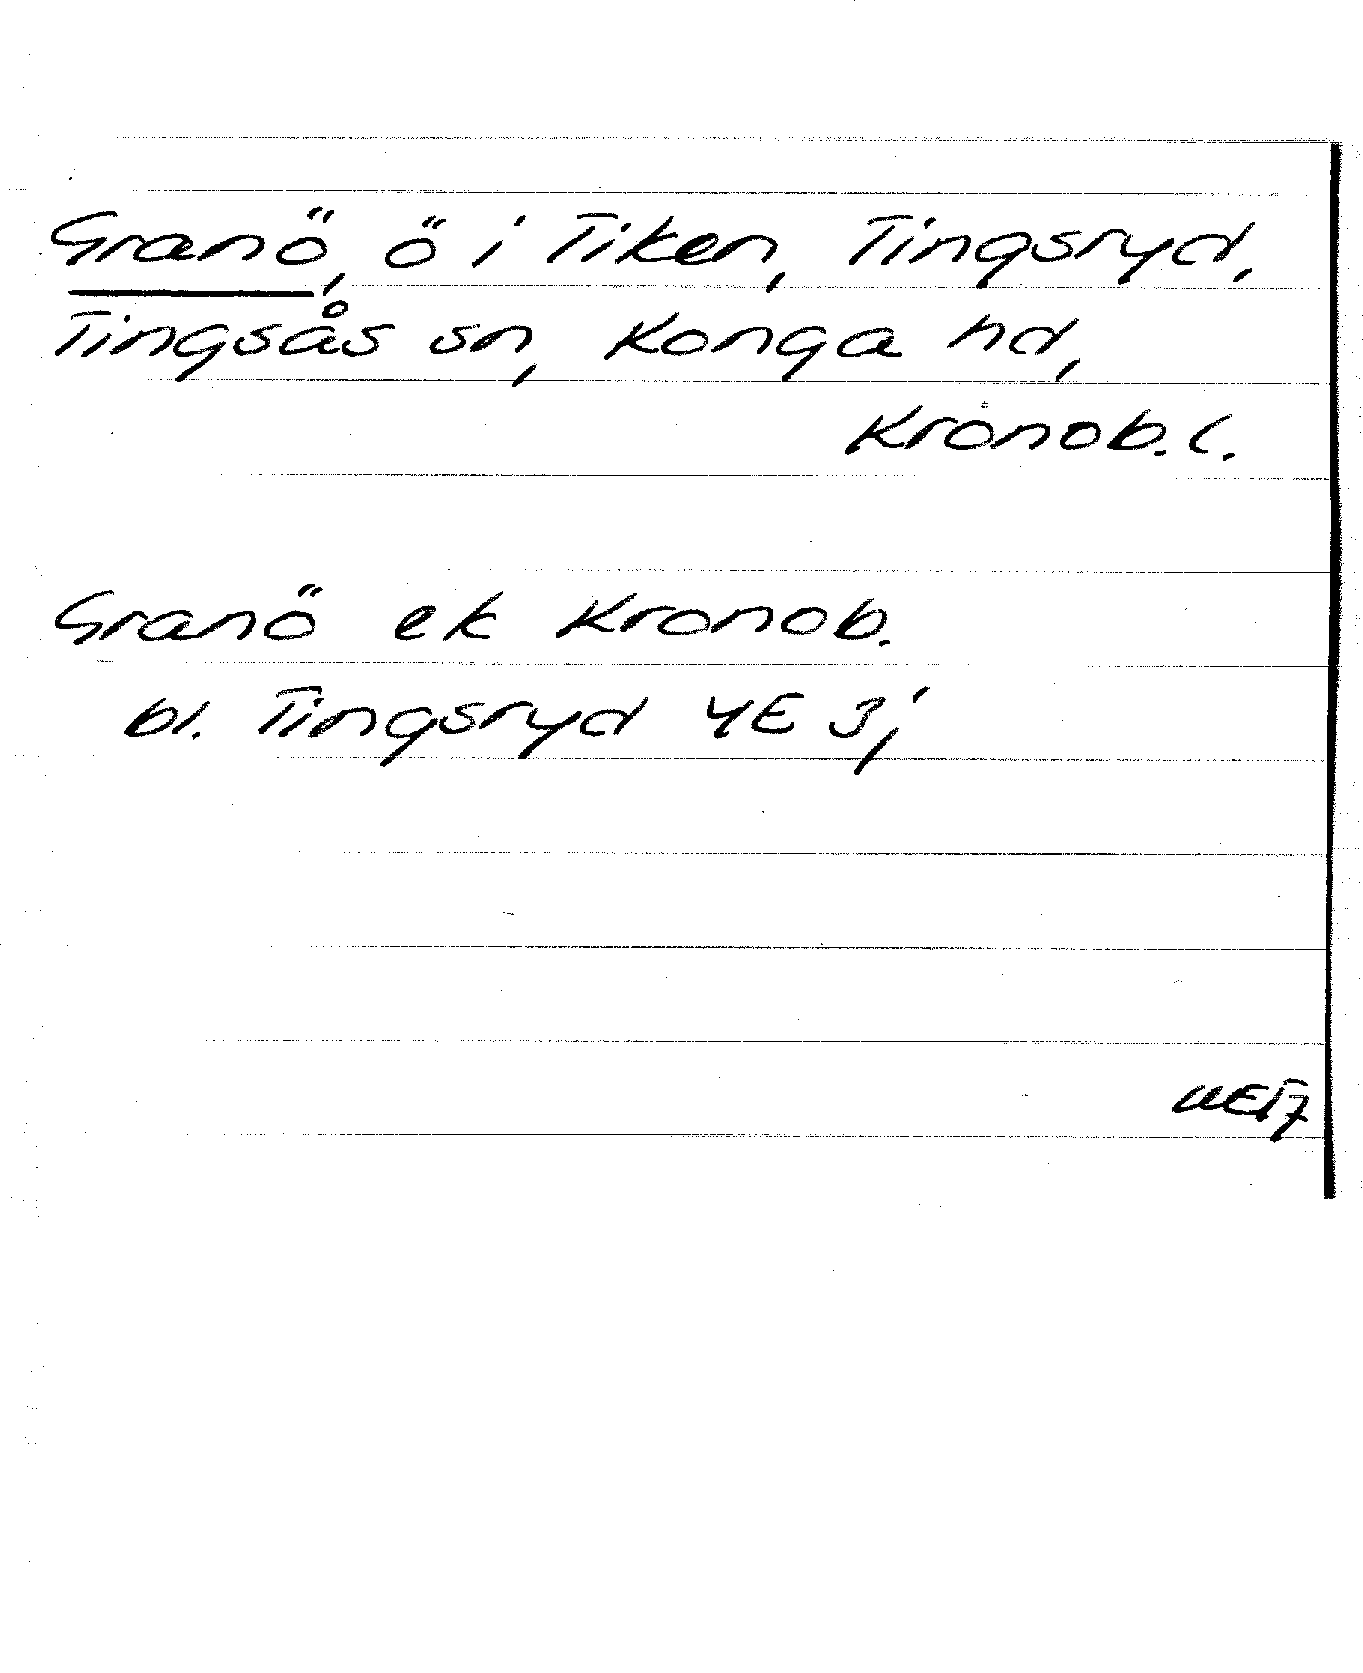 Granö, ö i Tiken, Tingsryd,
Tingsås sn, Konga hd,
Kronob. l.
Granö ek Kronob.
bl. Tingsryd 4E 3j